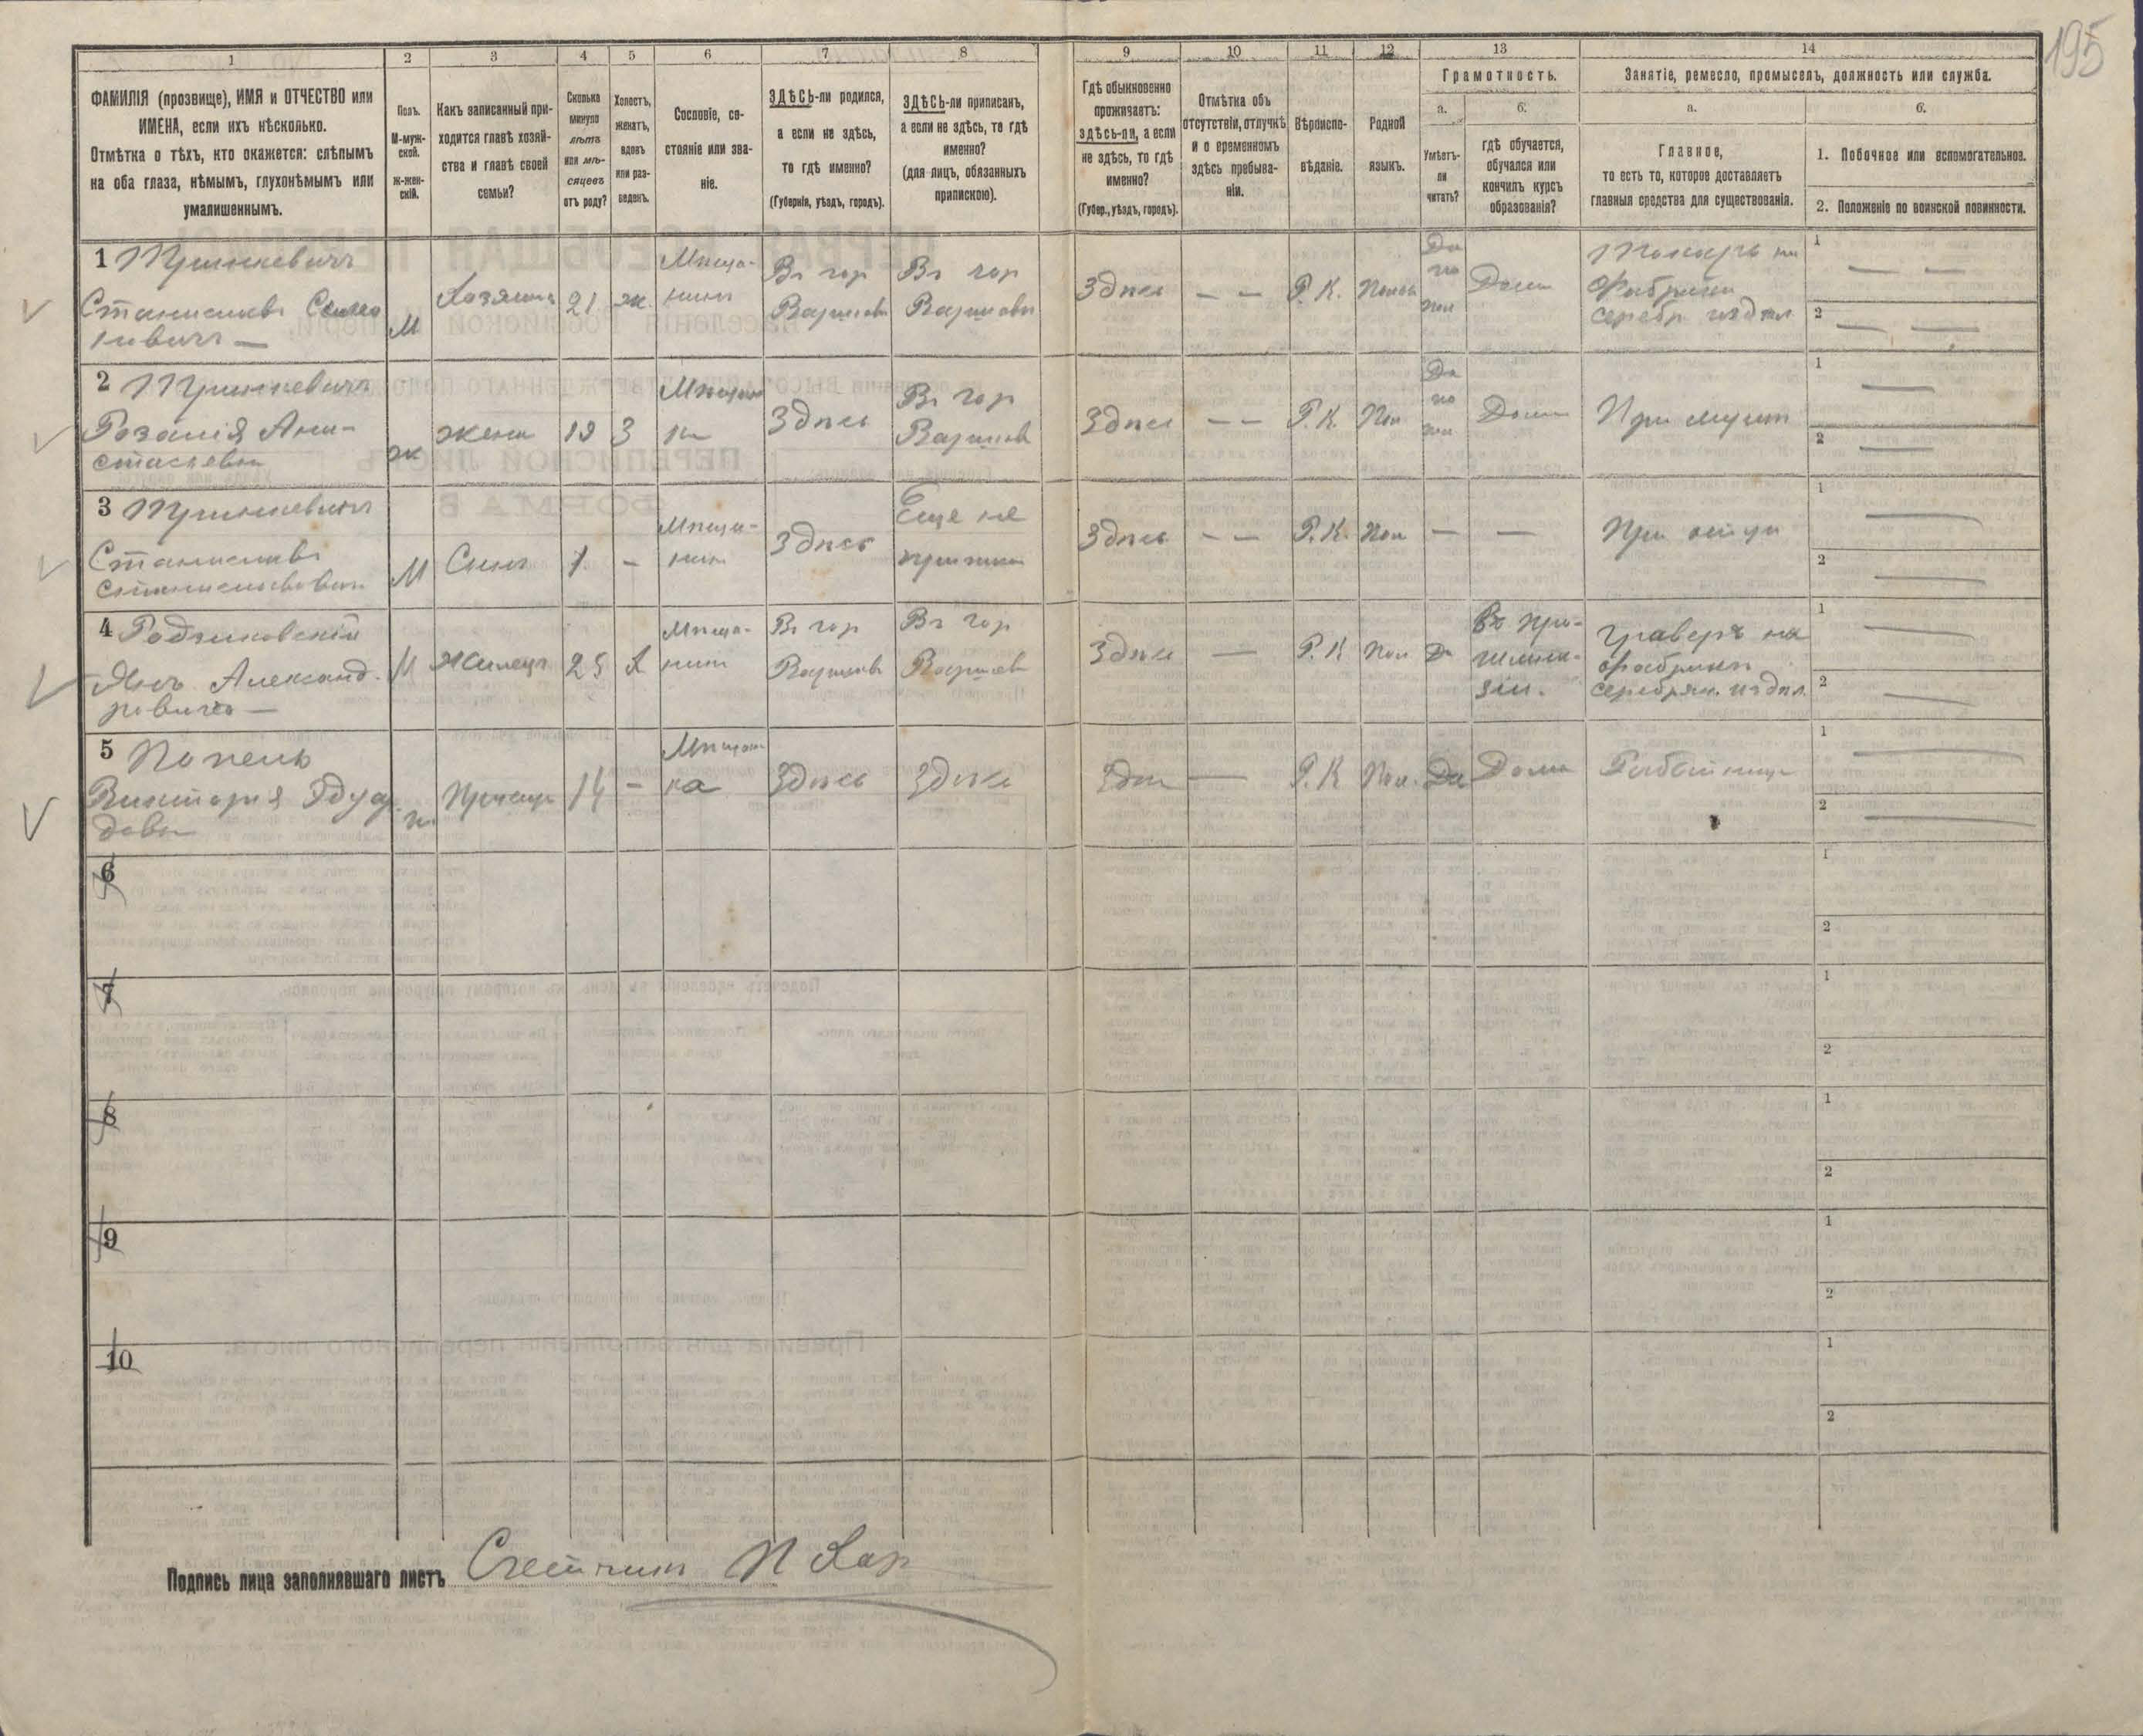 195
1 2 3 4 5 6 7 8 9 10 11 12 13 14
ФАМИЛІЯ (прозвище), ИМЯ и ОТЧЕСТВО или
ИМЕНА, если ихъ нѣсколько.
Отмѣтка о тѣхъ, кто окажется: слѣпымъ
на оба глаза, нѣмымъ, глухонѣмымъ или
умалишеннымъ.
Полъ.
М-муж-
ской.
Ж-жен-
скій.
Какъ записанный при-
ходится главѣ хозяй-
ства и главѣ своей
семьи?
Сколько
минуло
лѣтъ
или мѣ-
сяцевъ
отъ роду?
Холостъ,
женатъ,
вдовъ
или раз-
веденъ.
Сословіе, со-
стояніе или зва-
ніе.
ЗДѢСЬ-ли родился,
а если не здѣсь,
то гдѣ именно?
(Губернія, уѣздъ, городъ).
ЗДѢСЬ-ли приписанъ,
а если не здѣсь, то гдѣ
именно?
(для лицъ, обязанныхъ
припискою).
Гдѣ обыкновенно
проживаетъ:
здѣсь-ли, а если
не здѣсь, то гдѣ
именно?
(Губер., уѣздъ, городъ).
Отмѣтка объ
отсутствіи, отлучкѣ
и о временномъ
здѣсь пребыва-
ніи.
Вѣроиспо-
вѣданіе.
Родной
языкъ.
Грамотность.
а.
Умѣетъ-
ли
читать?
б.
гдѣ обучается,
обучался или
кончилъ курсъ
образованія?
Занятіе, ремесло, промыселъ, должность или служба.
а.
Главное,
то есть то, которое доставляетъ
главныя средства для существованія.
б.
1. Побочное или вспомогательное.
2. Положеніе по воинской повинности.
1
Станиславъ
М
21
ж.
Мѣща-
нинъ
Въ гор
Варшавѣ
Въ гор
Варшавы
Здѣсь
— —
Р. К.
Да
по
пол
Дома
Токарь на
Фабрики
серебр издѣл
1 — —
2 — —
2
Розалія Ана-
стасьевы
ж
жена
19
З
Здѣсь
Въ гор
Варшавѣ
Здѣсь
— —
Р. К.
Пол
Да
по
пол
Дома
При мужѣ
1 —
2 —
3
Станиславъ
Станиславович
М
Сынъ
1
—
Мѣща-
нин
Здѣсь
Еще не
Здѣсь
— —
Р. К.
Пол
—
—
При отцѣ
1 —
2 —
4
Янъ Александ-
ровичъ —
М
жилецъ
25
Х
Мѣща-
нин
Въ гор
Варшавѣ
Въ гор
Варшавѣ
Здѣсь
—
Р. К
Пол
Да
Граверъ на
фабрикѣ
серебрян. издѣл.
1 —
2 —
5 Попель
Викторія Эдуар-
довы
14
—
ка
Здѣсь
Здѣсь
Здѣс
—
Р. К
Пол.
Да
Дома
1 —
2 —
6
1
2
7
1
2
8
1
2
9
1
2
10
1
2
Подпись лица заполнявшаго листъ Счетчикъ